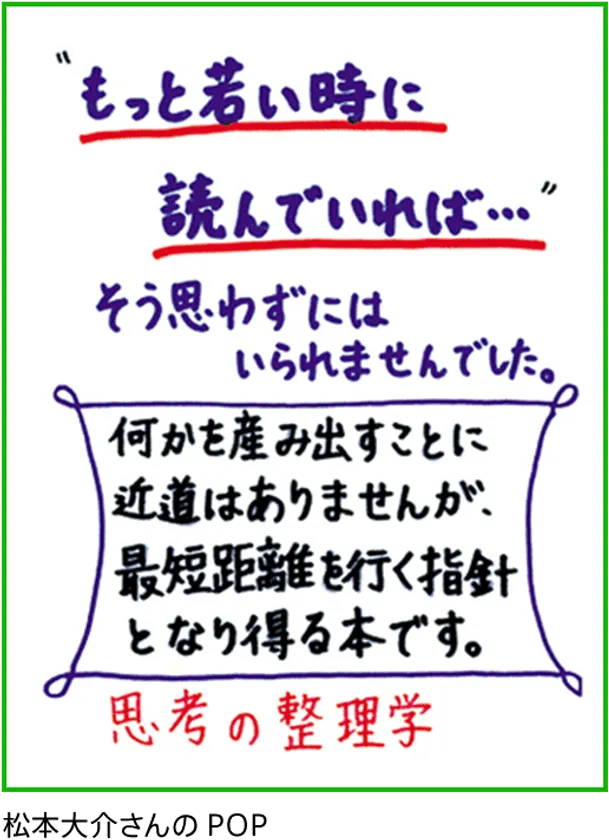 “もっと若い時に
読んでいれば…”
そう思わずには
いられませんでした。
何かを産み出すことに
近道はありませんが、
最短距離を行く指針
となり得る本です。
思考の整理学
松本大介さんの POP